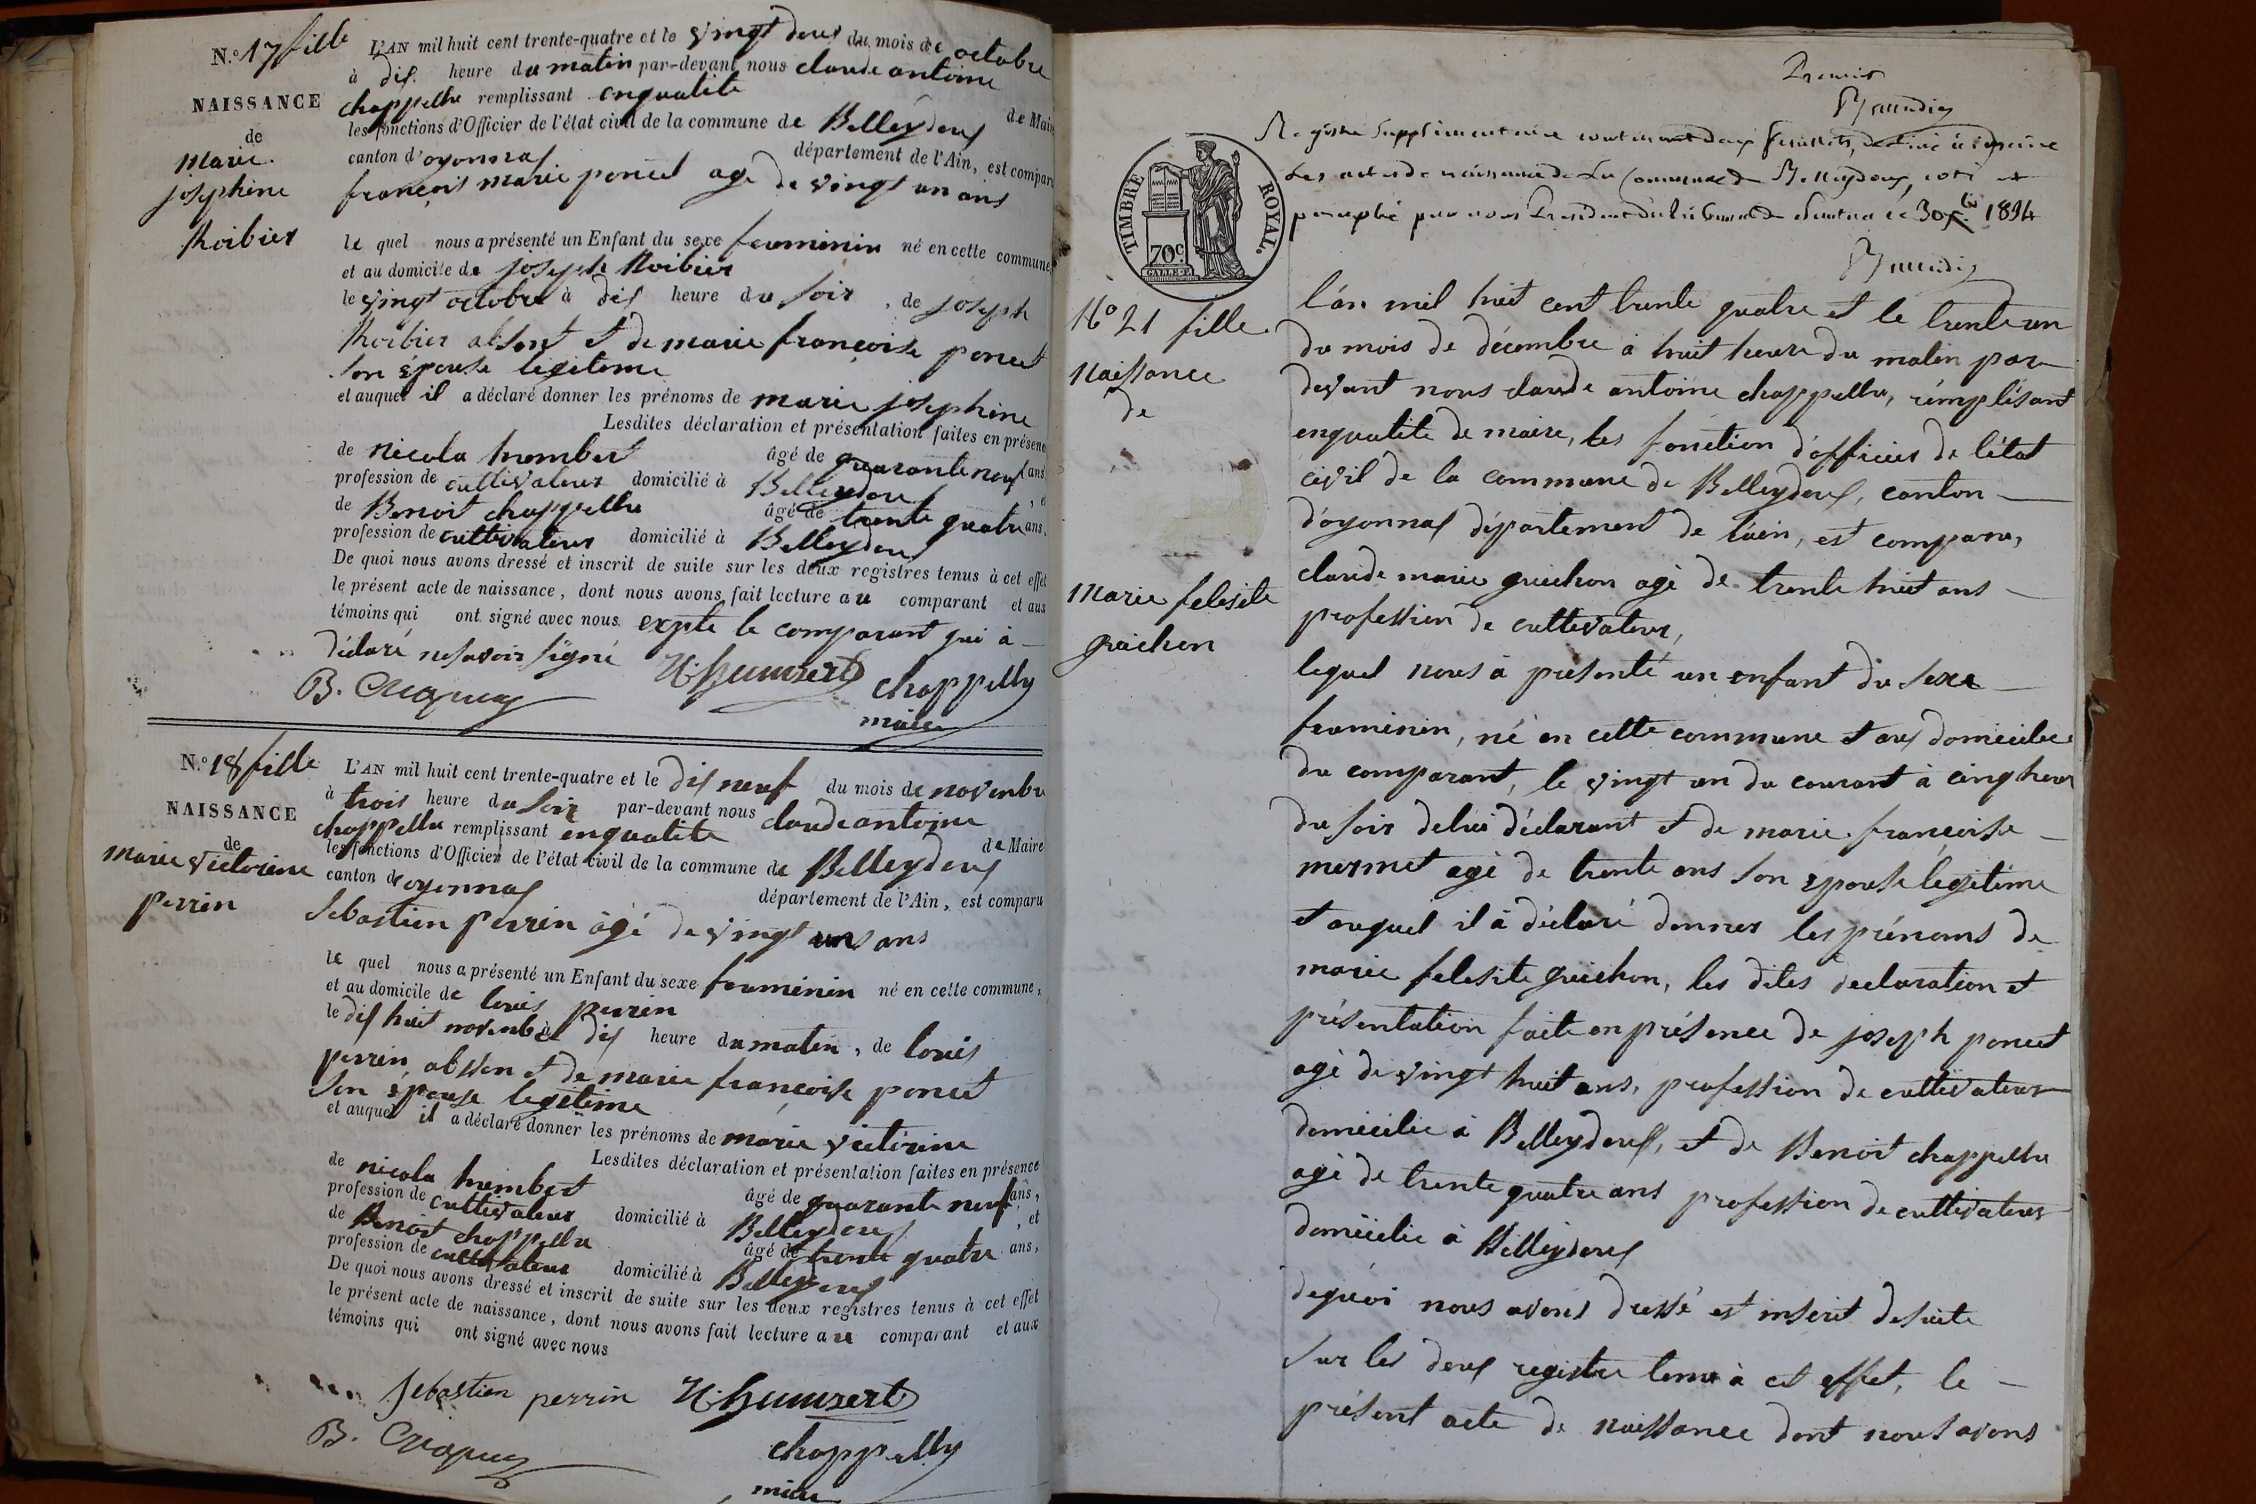 N.° 17 fille
NAISSANCE
de
marie
josephine
Roibier
L'AN mil huit cent trente-quatre et le vingt deux du mois de octobre
à dix heure du matin par-devant nous claude antoine
chappellu remplissant enqualite de Maire
les fonctions d'Officier de l'état civil de la commune de Belleydoux
canton d'oyonnax département de l'Ain, est comparu
françois marie poncet age de vingt un ans
le quel nous a présenté un Enfant du sexe feuminin né en cette commune
et au domicile de joseph Roibier
le vingt octobre à dix heure du soir, de joseph
Roibier absent et de marie françoise poncet
son épouse legiteme
et auquel il a déclaré donner les prénoms de marie josephine
Lesdites déclaration et présentation faites en présence
de nicola humbert âgé de quarante neuf ans
profession de cultivateur domicilié à Belleydoux, et
de Benoit chappellu âgé de trente quatre ans,
profession de cultivateur domicilié à Belleydoux
De quoi nous avons dressé et inscrit de suite sur les deux registres tenus à cet effet
le présent acte de naissance, dont nous avons fait lecture au comparant et aux
témoins qui ont signé avec nous expte le comparant qui à
déclaré nesavoir signé
N. humbert
B. chapellu
chappellu
maire
N.° 18 fille
NAISSANCE
de
marie victorine
perrin
L'AN mil huit cent trente-quatre et le dix neuf du mois de novembre
à trois heure du soir par-devant nous claude antoine
chappellu remplissant enqualite de Maire
les fonctions d'Officier de l'état civil de la commune de Belleydoux
canton d'oyonnax département de l'Ain, est comparu
sebastien perrin âgé de vingt uns ans
le quel nous a présenté un Enfant du sexe feuminin né en cette commune,
et au domicile de louis perrin
le dix huit novembre à dix heure du matin, de louis
perrin, abssen et de marie françoise poncet
son épouse legiteme
et auquel il a déclaré donner les prénoms de marie victorine
Lesdites déclaration et présentation faites en présence
de nicola humbert âgé de quarante neuf ans,
profession de cultivateur domicilié à Belleydoux, et
de Benoit chappellu âgé de trente quatre ans,
profession de cultivateur domicilié à Belleydoux
De quoi nous avons dressé et inscrit de suite sur les deux registres tenus à cet effet
le présent acte de naissance, dont nous avons fait lecture au comparant et aux
témoins qui ont signé avec nous
sebastien perrin N. humbert
B. chapellu
chappellu
maire
Registre supplémentaire contenant deux feuillets, destiné à inscrire
les actes de naissance de la commune de Belleydoux, coté et
paraphé par nous Président du tribunal de Nantua le 30 Xbre 1834
TIMBRE ROYAL.
70c
N° 21 fille
Naissance
de
Marie felesite
guichon
l'an mil huit cent trente quatre et le trente un
du mois de décembre à huit heure du matin par
devant nous claude antoine chappellu, remplisant
enqualite de maire, les fonction d'officier de l'état
civil de la commune de Belleydoux, canton
d'oyonnax département de l'ain, est comparu,
claude marie guichon agé de trente huit ans
profession de cultivateur,
lequel nous à présenté un enfant du sexe
feuminin, né en cette commune et aux domicilie
du comparant, le vingt un du courant à cinq heur
du soir delui déclarant et de marie françoisse
mermet agé de trente ans son épouse légitime
et auquel il à déclaré donner les prénoms de
marie felesite guichon, les dites declaration et
présentation faite en présence de joseph poncet
agé de vingt huit ans, profession de cultivateur
domicilie à Belleydoux, et de Benoit chappellu
agé de trente quatre ans profession de cultivateur
domicilie à Belleydoux
dequoi nous avons dressé et inscrit desuite
sur les deux registre tenu à cet effet, le
présent acte de naissance dont nous avons